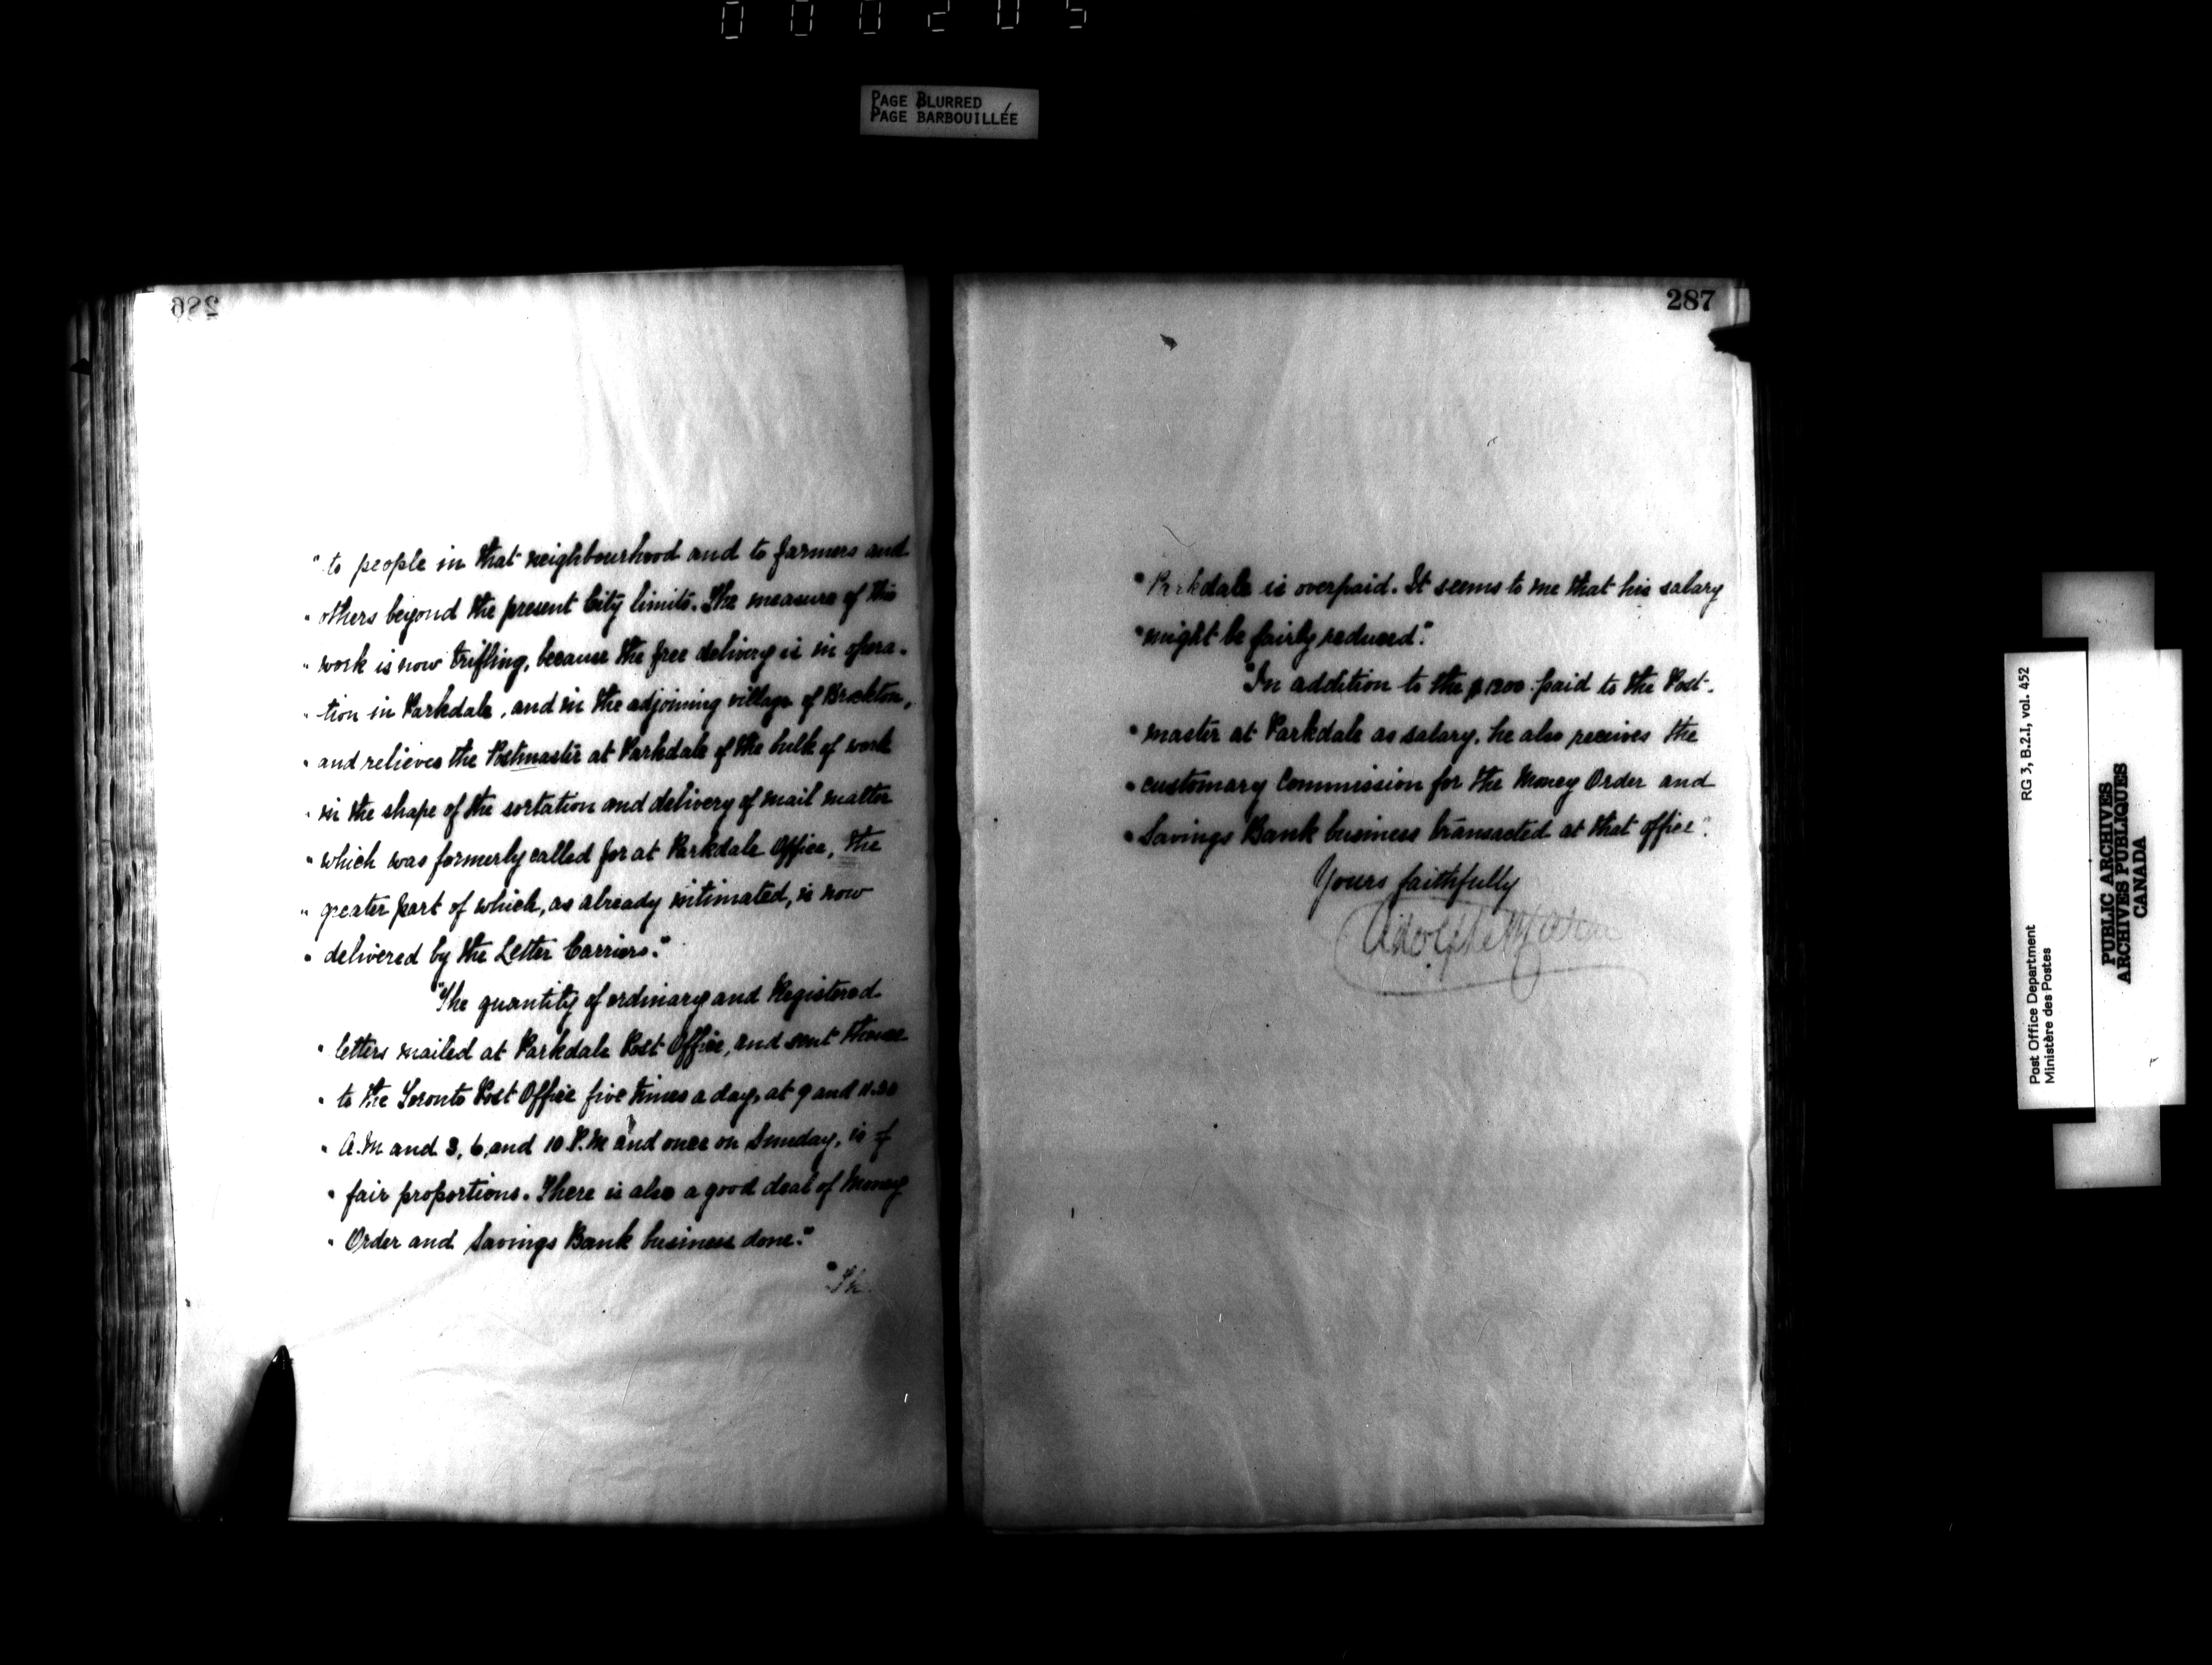 000205
PAGE BLURRED
PAGE BARBOUILLÉE
286
" to people in that neighbourhood and to farmers and
" others beyond the present City limits. The measure of this
" work is now trifling, because the free delivery is in opera-
" tion in Parkdale, and in the adjoining village of Brockton,
" and relieves the Postmaster at Parkdale of the bulk of work
" in the shape of the sortation and delivery of mail matter
" which was formerly called for at Parkdale Office, the
" greater part of which, as already intimated, is now
" delivered by the Letter Carriers."
"The quantity of ordinary and Registered
" letters mailed at Parkdale Post Office, and sent thence
" to the Toronto Post Office five times a day, at 9 and 11.30
" A.M and 3, 6, and 10 P.M and once on Sunday, is of
" fair proportions. There is also a good deal of Money
" Order and Savings Bank business done."
"Th
287
" Parkdale is overpaid. It seems to me that his salary
" might be fairly reduced."
"In addition to the $1200 paid to the Post-
" master at Parkdale as salary, he also receives the
" customary Commission for the Money Order and
" Savings Bank business transacted at that office".
Yours faithfully
Adolphe
RG 3, B.2.I, vol. 452
Post Office Department
Ministère des Postes
PUBLIC ARCHIVES
ARCHIVES PUBLIQUES
CANADA